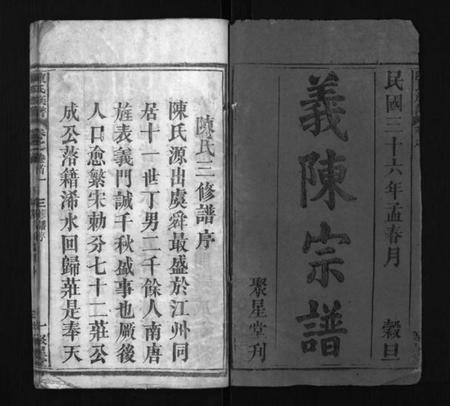 民國三十六年孟春月 穀旦
義陳宗譜
聚星堂刊
陳氏三修譜序
陳氏源出處舜最盛於江州同
居十一世丁男二千餘人南唐
旌表義門誠千秋盛事也厥後
人口愈繁宋勅分七十二莊公
成公落籍浠水回歸莊是奉天